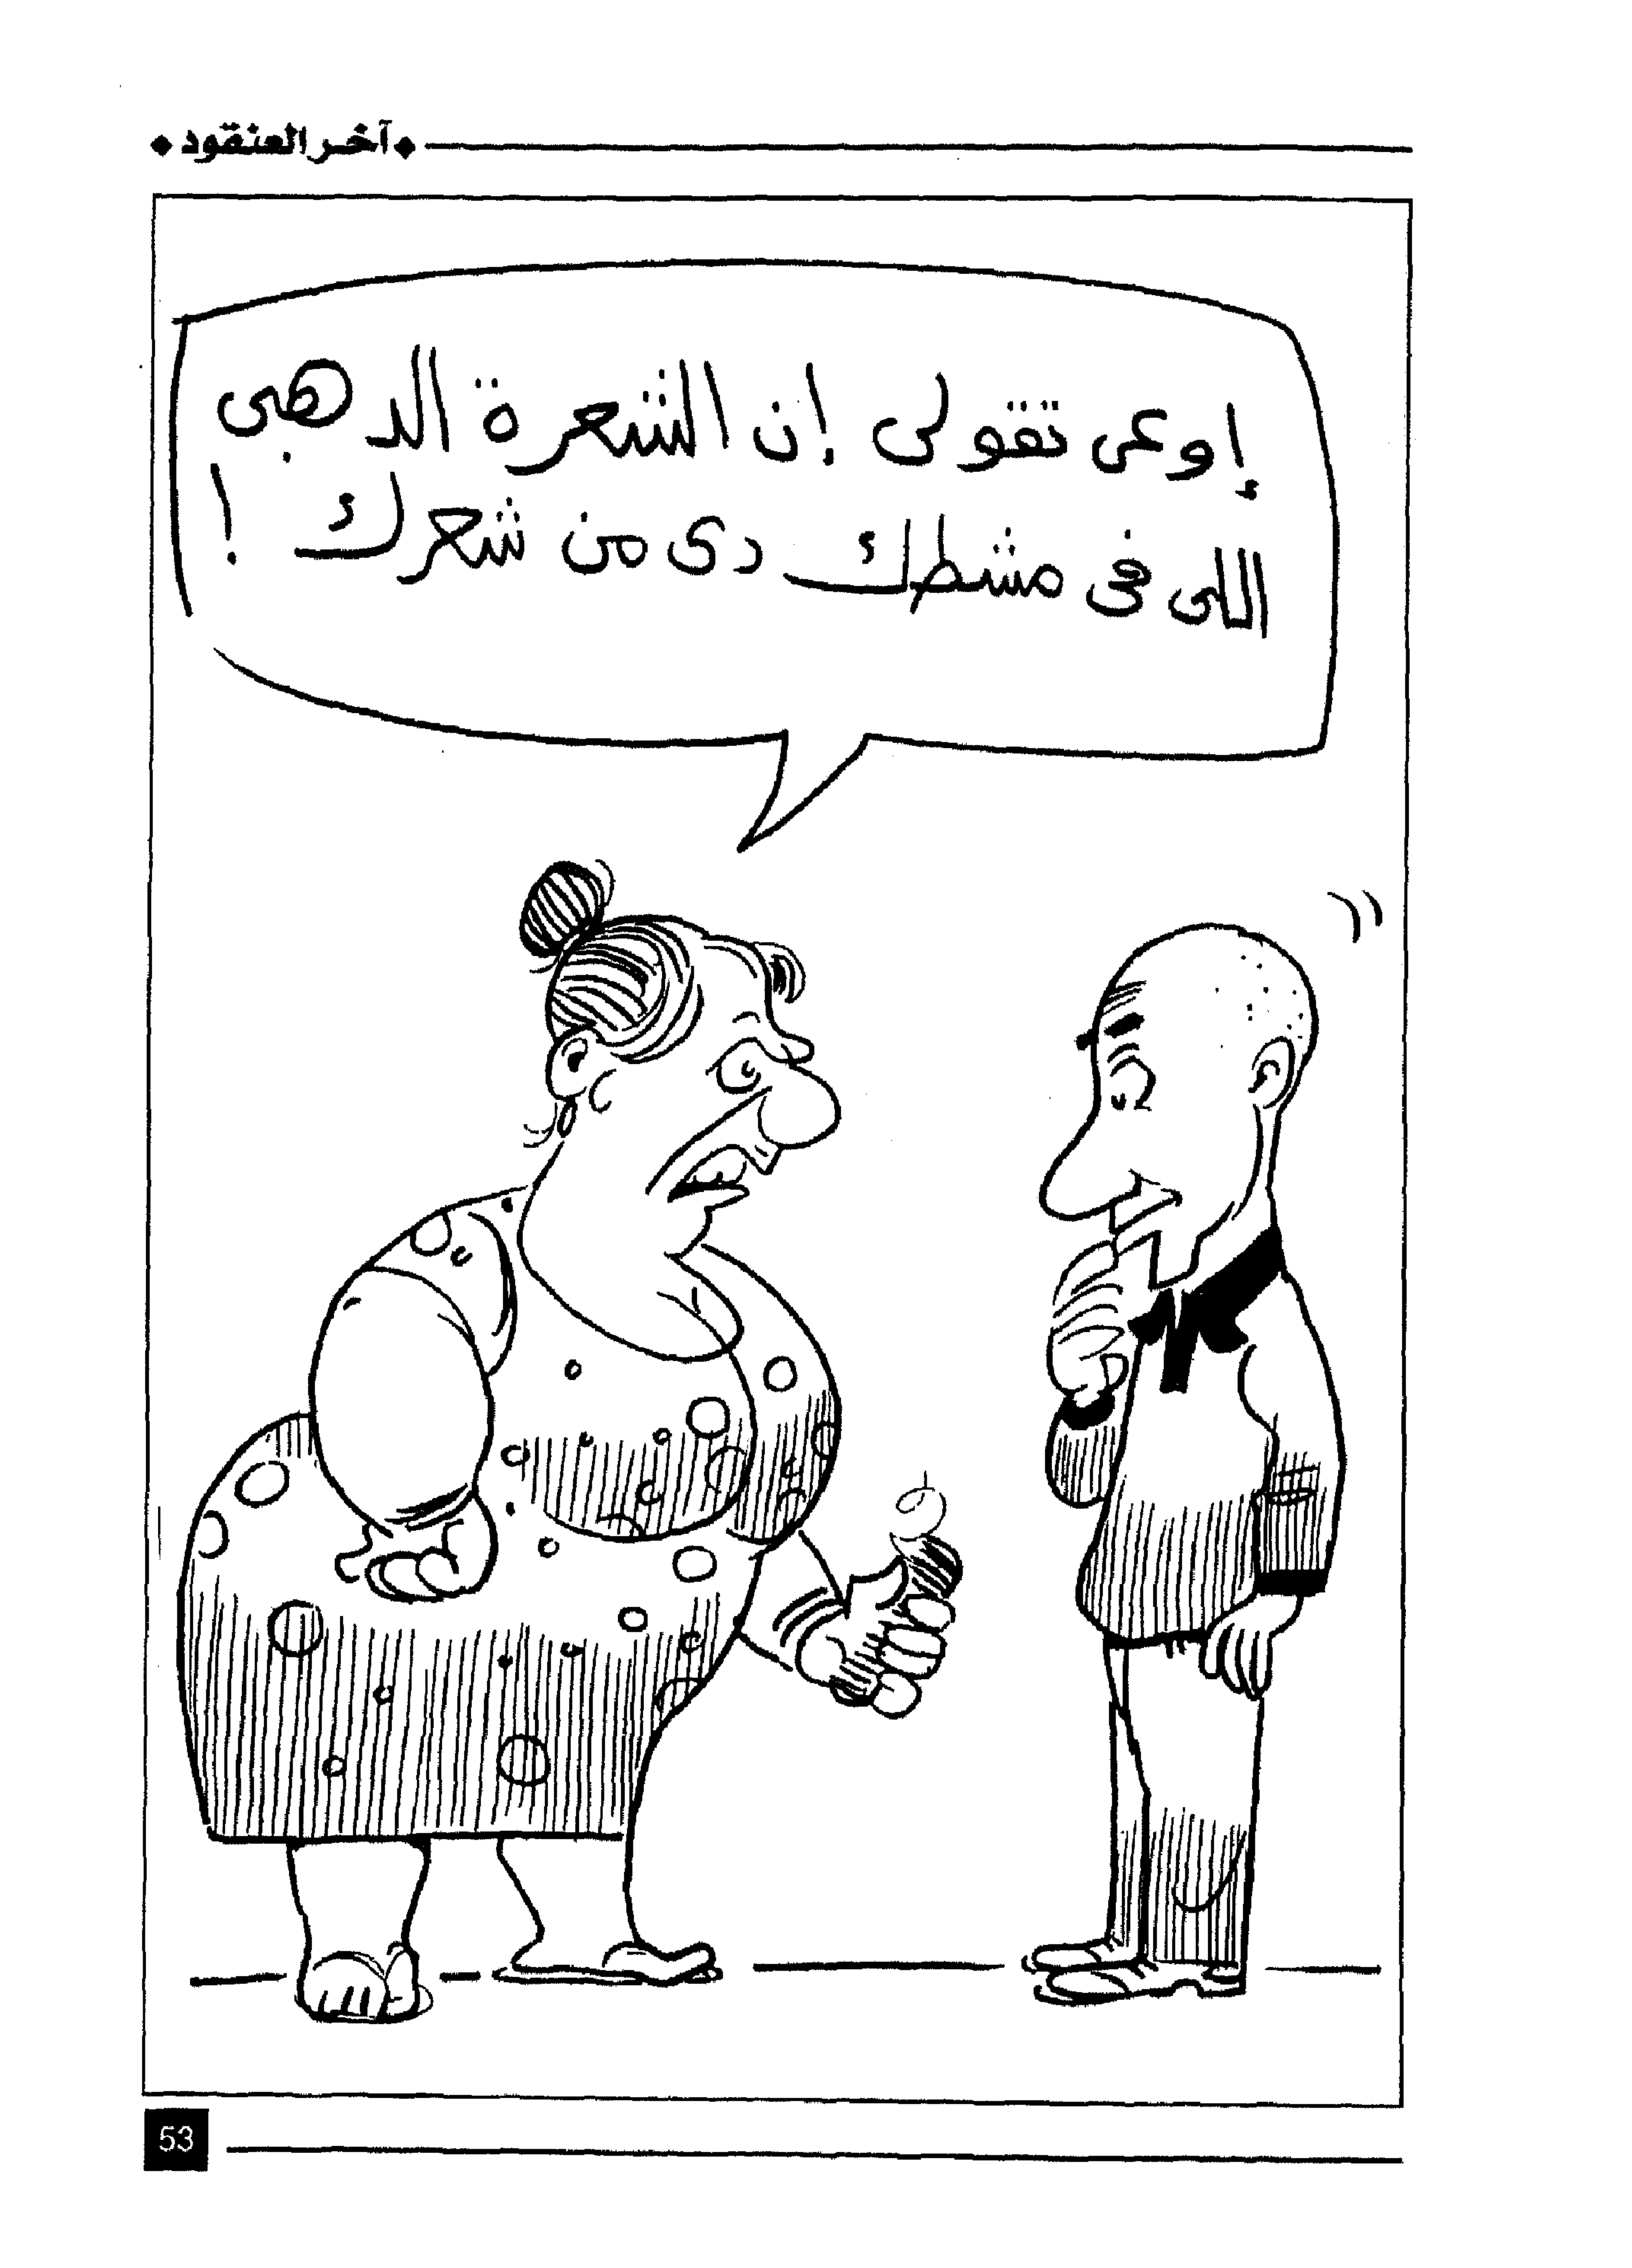 آخر العنقود
إوعى تقولى إن الشعرة الدهبى
اللى فى مشطك دى من شعرك !
53